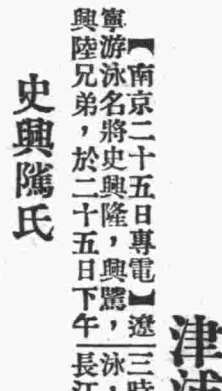 津
【南京二十五日專電】遼
寧游泳名將史興隆，興騭，
興陸兄弟，於二十五日下午
三時
泳
長江
史興隲氏